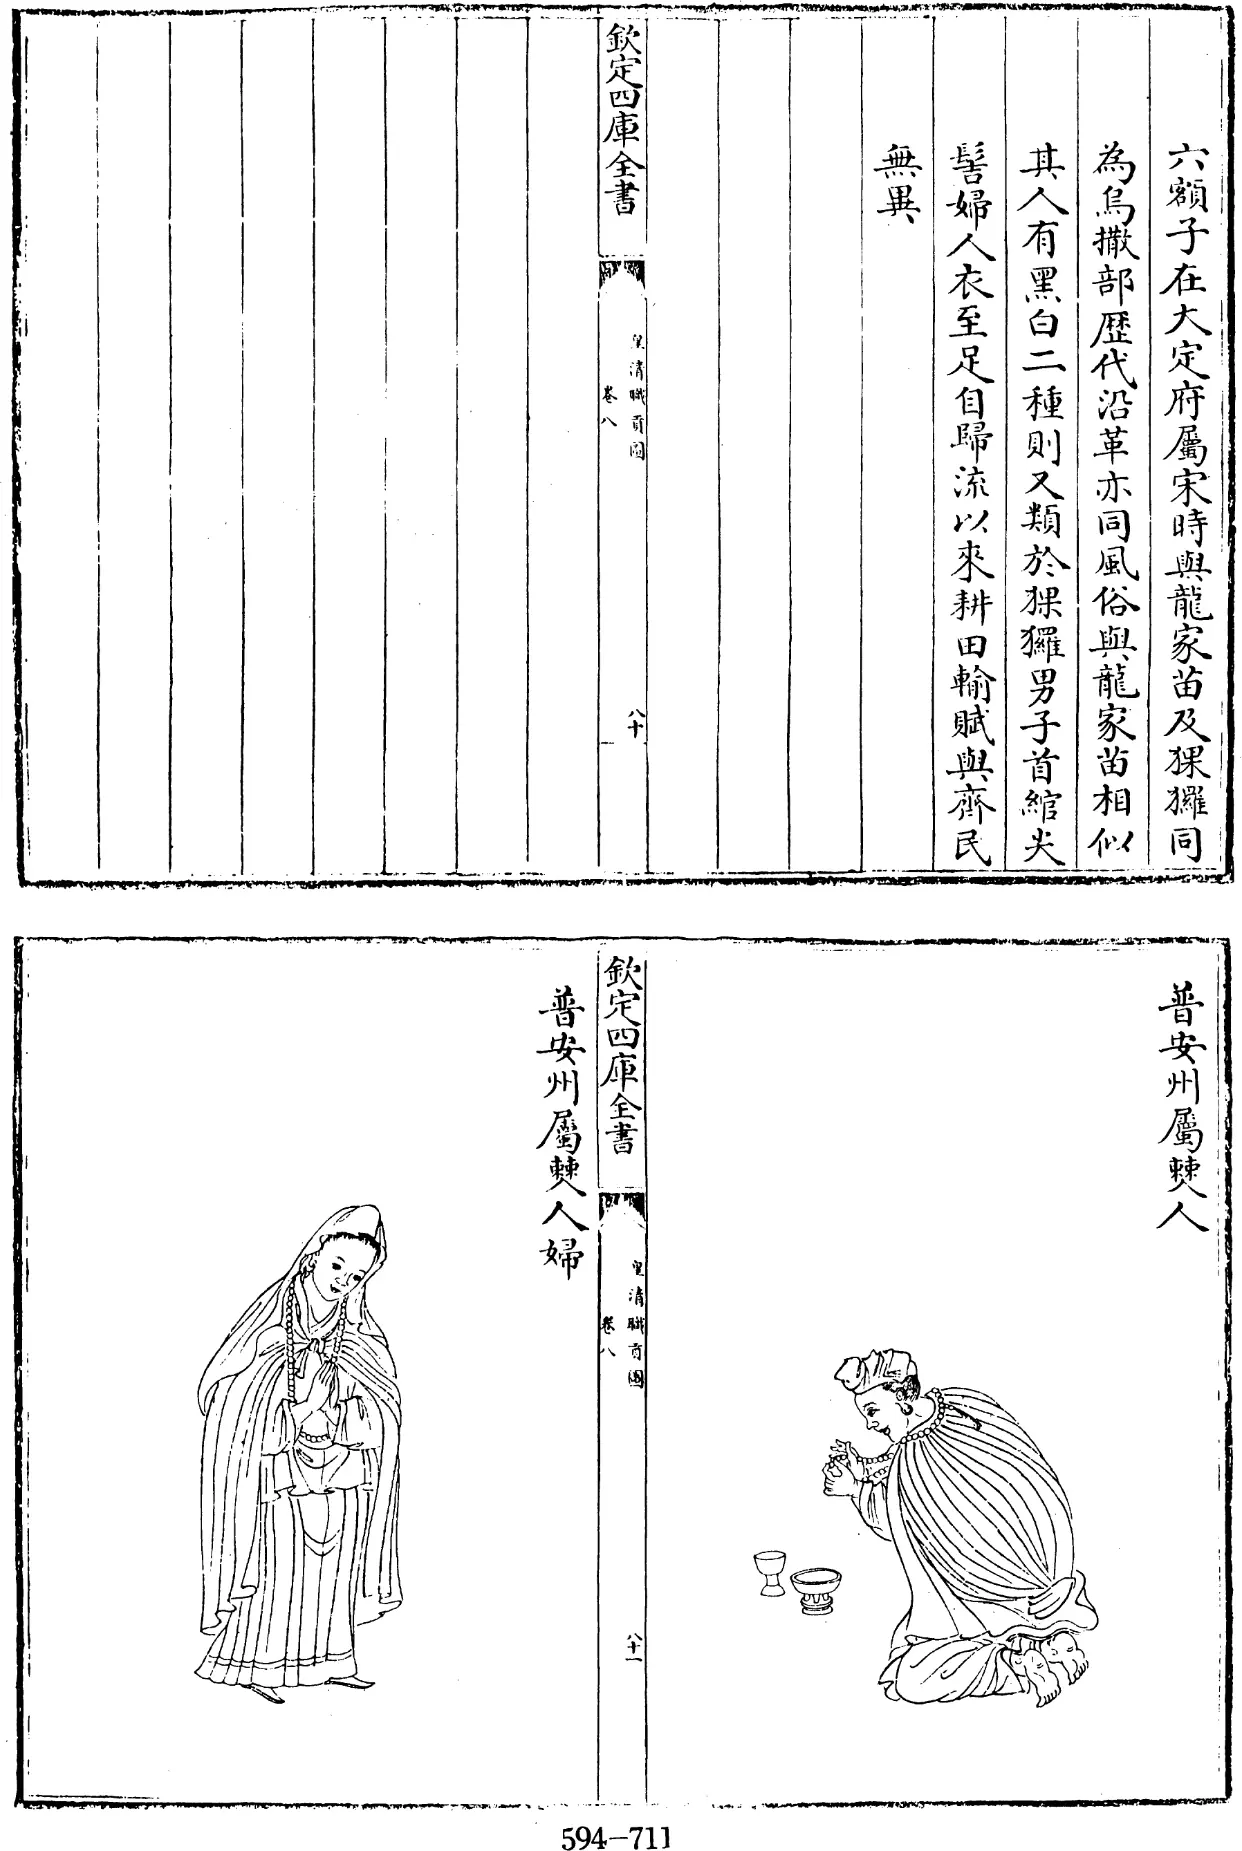 六額子在大定府屬宋時與龍家苗及猓玀同
為烏撒部歷代沿革亦同風俗與龍家苗相似
其人有黑白二種則又類於猓玀男子首綰尖
髻婦人衣至足自歸流以來耕田輸賦與齊民
無異
欽定四庫全書
皇清職貢圖
卷八
八十
普安州屬僰人
欽定四庫全書
皇清職貢圖
卷八
八十一
普安州屬僰人婦
594-711